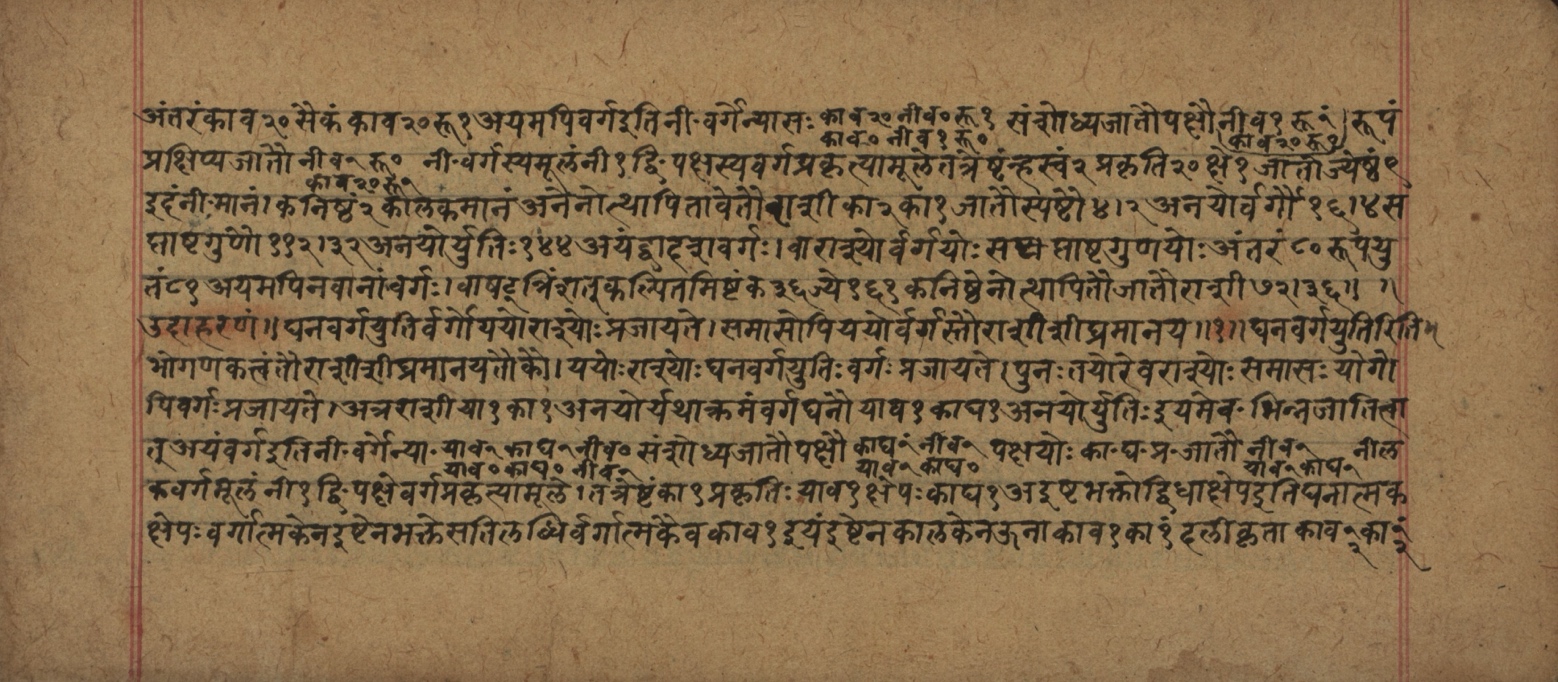 अंतरं काव२० सैकं काव२० रू१ अयमपि वर्ग इति नी॰वर्गेन्यासः काव२० नीव० रू१ संशोध्यजातौपक्षौ नीव१ रू१ं। रूपं
काव० नीव१ रू० काव२० रू०
प्रक्षिप्यजातौ नीव१ रू० नी॰वर्गस्यमूलंनी१ द्वि॰पक्षस्यवर्गप्रकृत्यामूले तत्रेष्टंन्हस्वं२ प्रकृति२० क्षे१ जातोज्येष्ठं९
काव२० रू१
इदंनी॰मानं। कनिष्ठं२ कालकमानं अनेनोत्थापितावेतौ राशी का२ का१ जातौस्पष्टौ ४।२ अनयोर्वर्गौ १६।४ स
प्ताष्टगुणौ ११२।३२ अनयोर्युतिः१४४ अयंद्वादशवर्गः। वाराश्योर्वर्गयोः सप्ताष्टगुणयोः अंतरं ८० रूपयु
तं८१ अयमपिनवानांवर्गः। वाषट्त्रिंशत्तुकल्पितमिष्टंक३६ज्ये१६१ कनिष्ठेनोत्थापितौजातौराशी७२।३६॥ ॥
उदाहरणं॥ घनवर्गयुतिर्वर्गोययोराश्योःप्रजायते। समासोपिययोर्वर्गस्तौराशीशीघ्रमानय॥१॥ घनवर्गयुतिरिति॥
भोगणकत्वंतौराशीशीघ्रमानयतौकौ। ययोःराश्योःघनवर्गयुतिःवर्गःप्रजायते। पुनःतयोरेवराश्योःसमासःयोगो
पिवर्गःप्रजायते। अत्रराशीया१ का१ अनयोर्यथाक्रमंवर्गघनौ याव१ काघ१ अनयोर्युतिःइयमेव॰ भिन्नजातित्वा
त् अयंवर्ग इतिनी॰वर्गेन्या॰ याव१ काघ१ नीव० संशोध्यजातौपक्षौ काघ१ं नीव१ पक्षयोः का॰घ॰प्र॰जातौ नीव१ नील
याव० काघ० नीव१ याव१ काघ० याव१ काघ१
कवर्गमूलं नी१ द्वि॰पक्षेवर्गप्रकृत्यामूले। तत्रेष्टंका१ प्रकृतिः याव१ क्षेपःकाघ१ अइष्टभक्तोद्विधाक्षेपइतिघनात्मक
क्षेपःवर्गात्मकेनइष्टेनभक्तेसतिलब्धिर्वर्गात्मकैवकाव१ इयंइष्टेनकालकेनऊनाकाव१का१ं दलीकृता काव१ का१ं
२ २